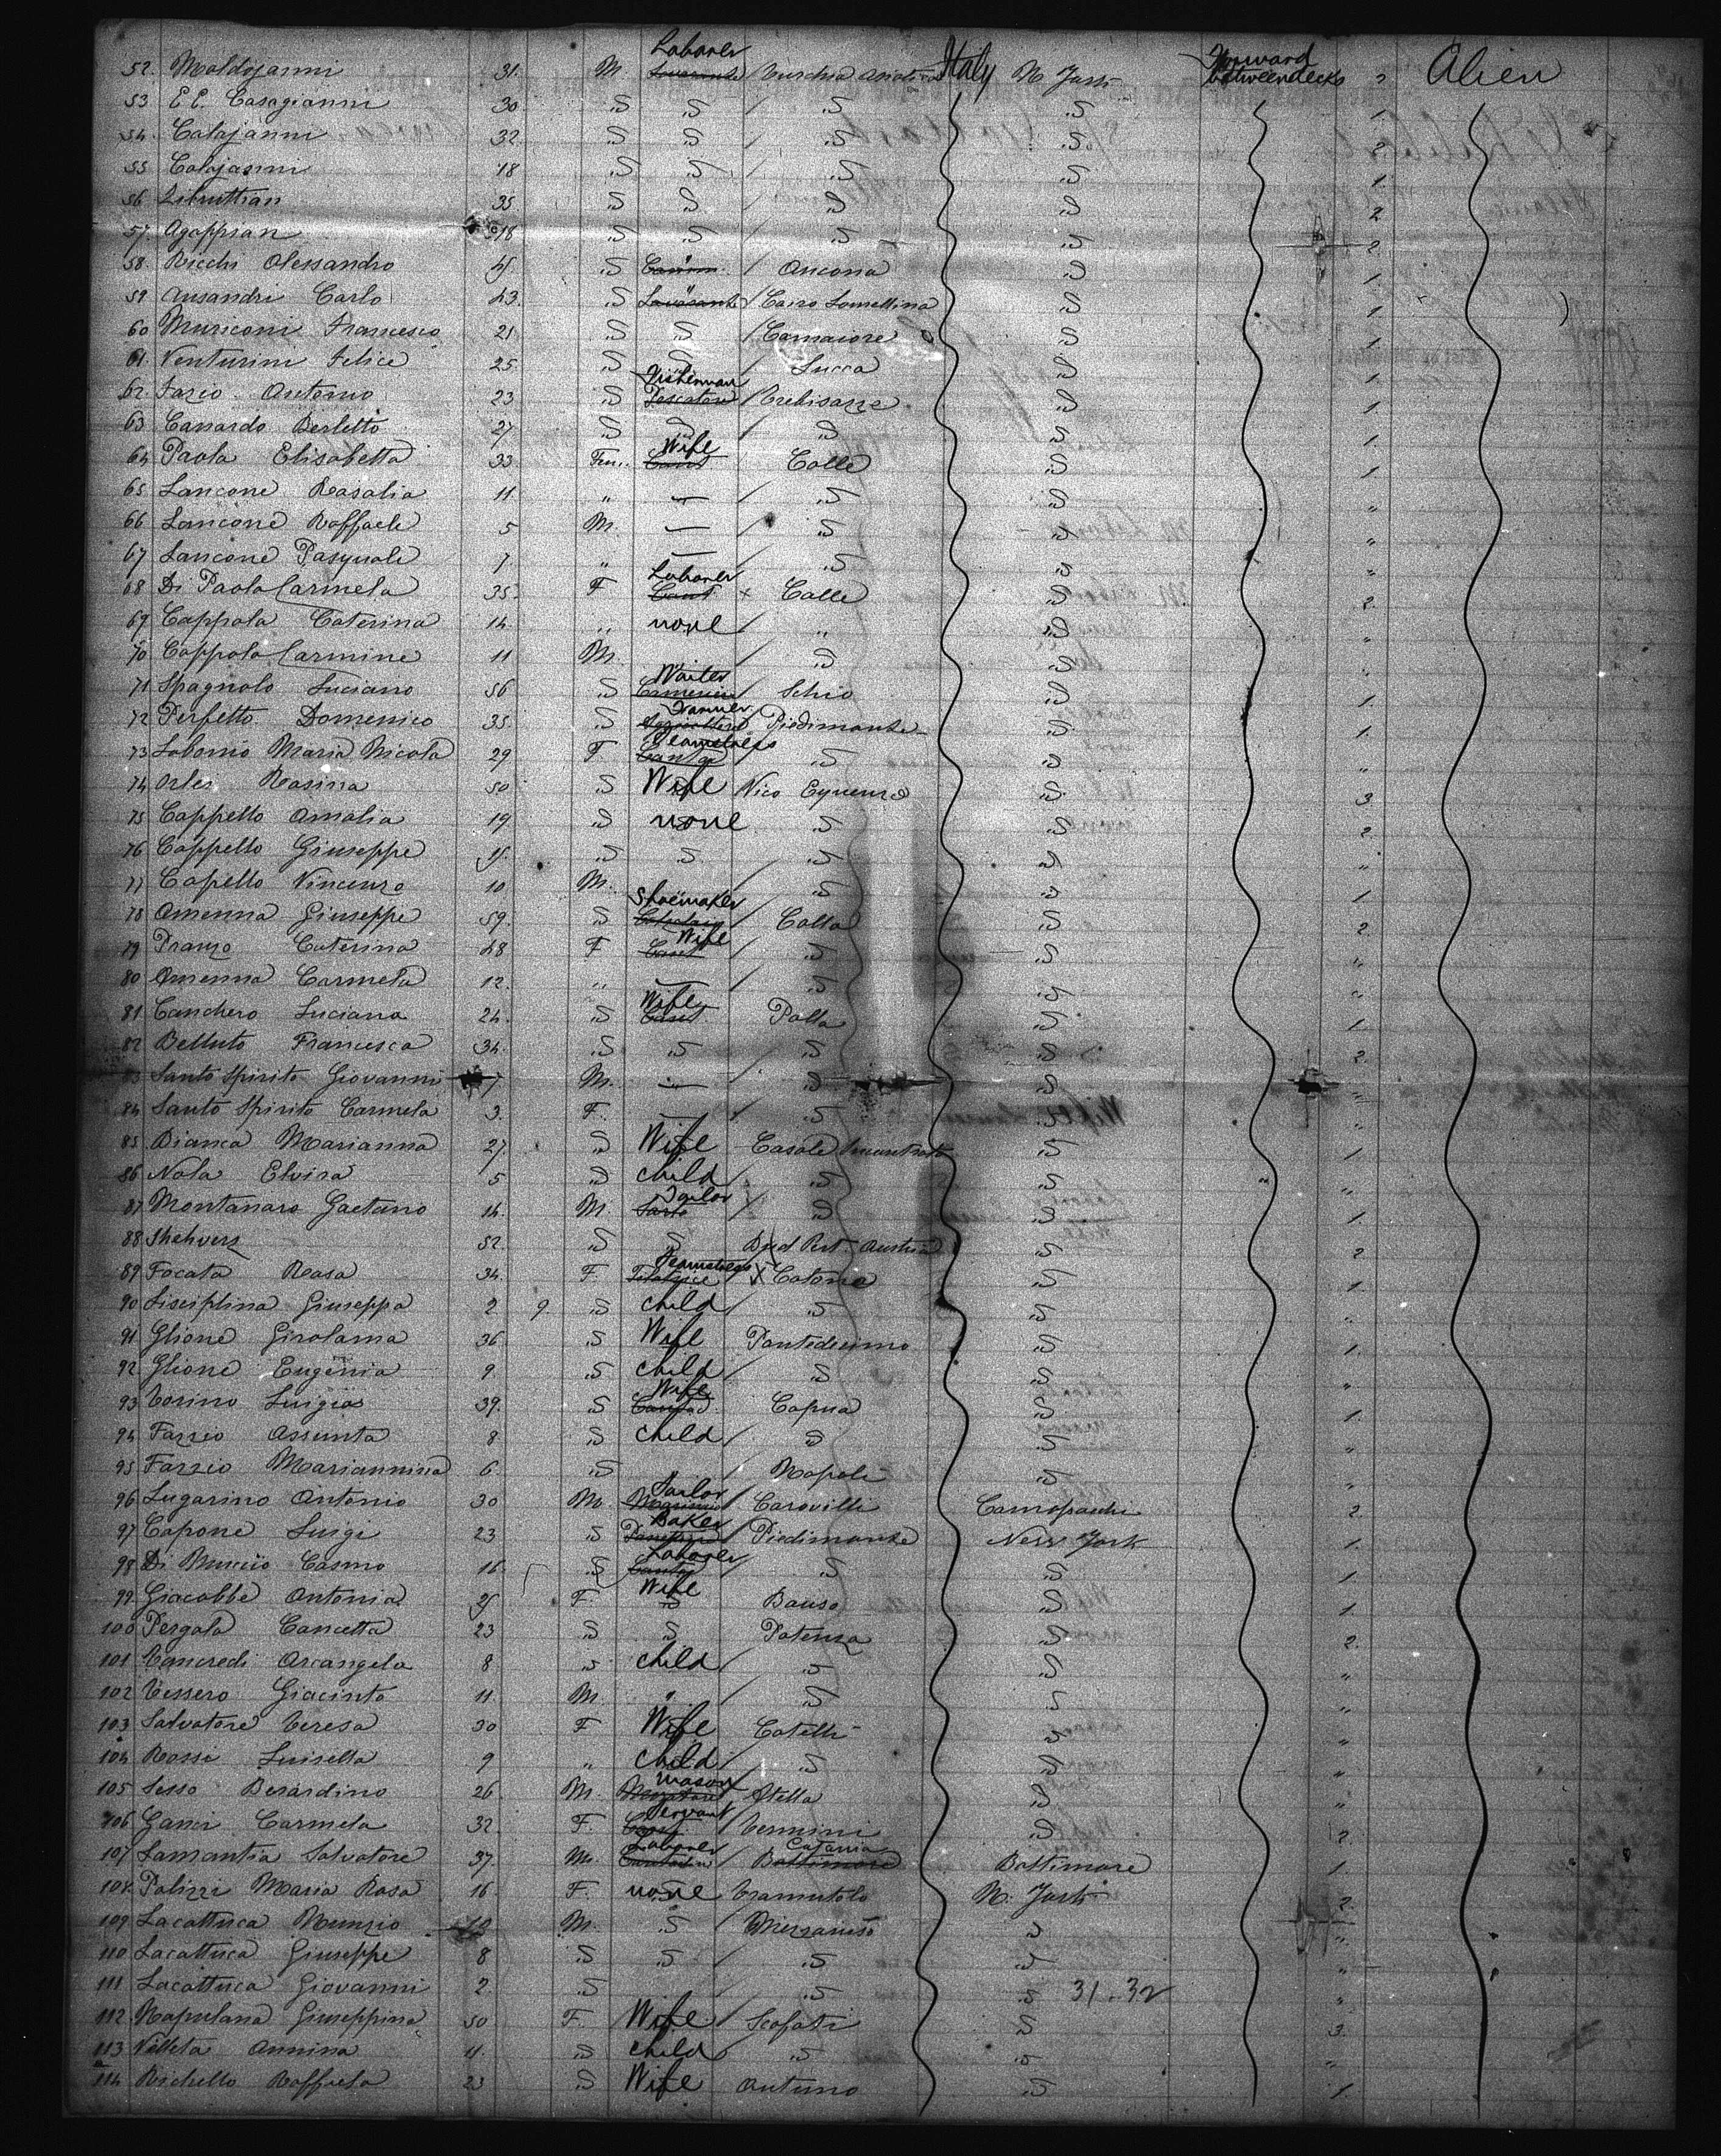 52. Maldojanni 31. M. Laborer Turchia Asiatica Italy N. York Forward betweendecks 2 Alien
53 E. E. Casagianni 30 " " " " 1.
54. Calajanni 32. " " " " 2
55 Calajanni 18 " " " " 1.
56 35 " " " " 2
57. Agoppian 18 " " " " 2.
58. Ricchi Alessandro " " Ancona " 1.
59 Ansandri Carlo 43. " Lavorante Cairo Lomellina " 1.
60 Muriconi Francesco 21 " " Camaiore " 1.
61 Venturini Felice 25. " " Lucca " 1.
62. Fazio Antonio 23 " Fisherman Pescatore Trebisazze " 1.
63 Cassardo Berletto 27 " " " " 1.
64 Paola Elisabetta 33 Fem. Wife Colle " 1.
65 Lancone Rosalia 11. " — " " "
66 Lancone Raffaele 5 M. — " " "
67 Lancone Pasquale 7 " — " " "
68 Di Paola Carmela 35. F Laborer Colle " 2.
69 Cappola Caterina 14 " none " " "
70 Coppola Carmine 11 M. " " " "
71 Spagnolo Luciano 56 " Waiter Schio " 1.
72 Perfetto Domenico 35 " Farmer Piedimonte " 1.
73 Labonio Maria Nicola 29 F. Seamstress " " "
74 Orles Rosina 50 " Wife Vico Equense " 3
75 Cappello Amalia 19 " none " " 2
76 Cappello Giuseppe " " " " "
77 Capello Vincenzo 10 M. " " " 1
78 Amenna Giuseppe 59. " Shoemaker Calla " 2.
79 Pranzo Caterina 48 F Wife " " "
80 Amenna Carmela 12. " — " " "
81 Canchero Luciana 24. " Wife Palla " 1.
82 Belluto Francesca 34. " " " " 2.
83 Santo Spirito Giovanni 7 M. — " " "
84 Santo Spirito Carmela 3. F. — " " "
85 Bianca Marianna 27. " Wife Casale " 1
86 Nola Elvira 5 " child " " "
87 Montanaro Gaetano 14 M. Tailor Sarto " " 1.
88 52. " " Bud Pest Austria " 2
89 Focata Rosa 34. F. Seamstress Catona " 1.
90 Lisciplina Giuseppa 2 9. " child " " "
91 Glione Girolama 36. " Wife Pontedecimo " 1.
92 Glione Eugenia 9. " child " " "
93 Torino Luigia 39. " Wife Capua " 1.
94 Fazzio Assunta 8 " child " " "
95 Fazzio Mariannina 6 " Napoli " "
96 Lugarino Antonio 30 M. Sailor Marinaio Carovilli 2
97 Capone Luigi 23 " Baker Piedimonte New York 1.
98 Di Muccio Casmo 16. " Laborer " " 1
99 Giacobbe Antonia F. Wife " Bauso " 1.
100 Pergola Concetta 23 " " Potenza " 2.
101 Tancredi Arcangela 8 " child " " "
102 Tessero Giacinto 11 M. " " " "
103 Salvatore Teresa 30 F Wife Catelli " "
104 Rossi Luisella 9 " child " " "
105 Sesso Berardino 26 M. mason Muratore Atella " "
106 Ganci Carmela 32. F. Servant Termini " 2.
107 Lamantia Salvatore 37. M. Laborer Catania Baltimore Baltimore 1.
108. Palizzi Maria Rosa 16 F. none Tramutola N. York 2.
109 Lacattuca Nunzio 10 M. " Mezzanuso " "
110 Lacattuca Giuseppe 8 " " " " "
111 Lacattuca Giovanni 2. " " " 31.32 "
112 Napulana Giuseppina 50 F. Wife Scafati " 3.
113 Villeta Annina 11. " child " " "
114 Richello Raffaela 23 " Wife " 1.